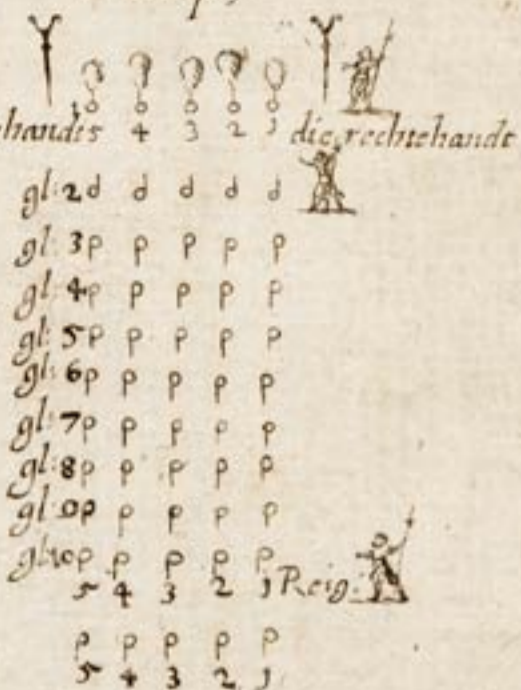 handt 5 4 3 2 1 die rechte handt
gl: 2 d d d d d
gl: 3 p p p p p
gl: 4 p p p p p
gl: 5 p p p p p
gl: 6 p p p p p
gl: 7 p p p p p
gl: 8 p p p p p
gl: 0 p p p p p
gl: 10 p p p p p
5 4 3 2 1 Reig:
p p p p p
5 4 3 2 1